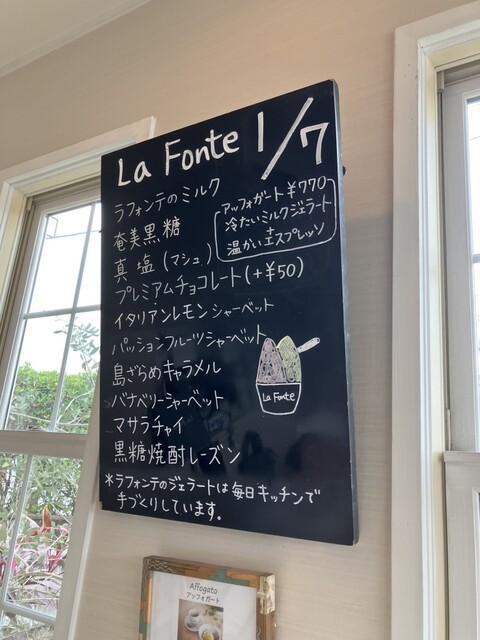 La Fonte 1/7
ラフォンテのミルク
奄美黒糖
真塩(マシュ)
プレミアムチョコレート(+¥50)
イタリアンレモンシャーベット
パッションフルーツシャーベット
島ざらめキャラメル
バナベリーシャーベット
マサラチャイ
黒糖焼酎レーズン
*ラフォンテのジェラートは毎日キッチンで
手づくりしています。
アッフォガート¥770
冷たいミルクジェラート
+
温かいエスプレッソ
La Fonte
Affogato
アッフォガート